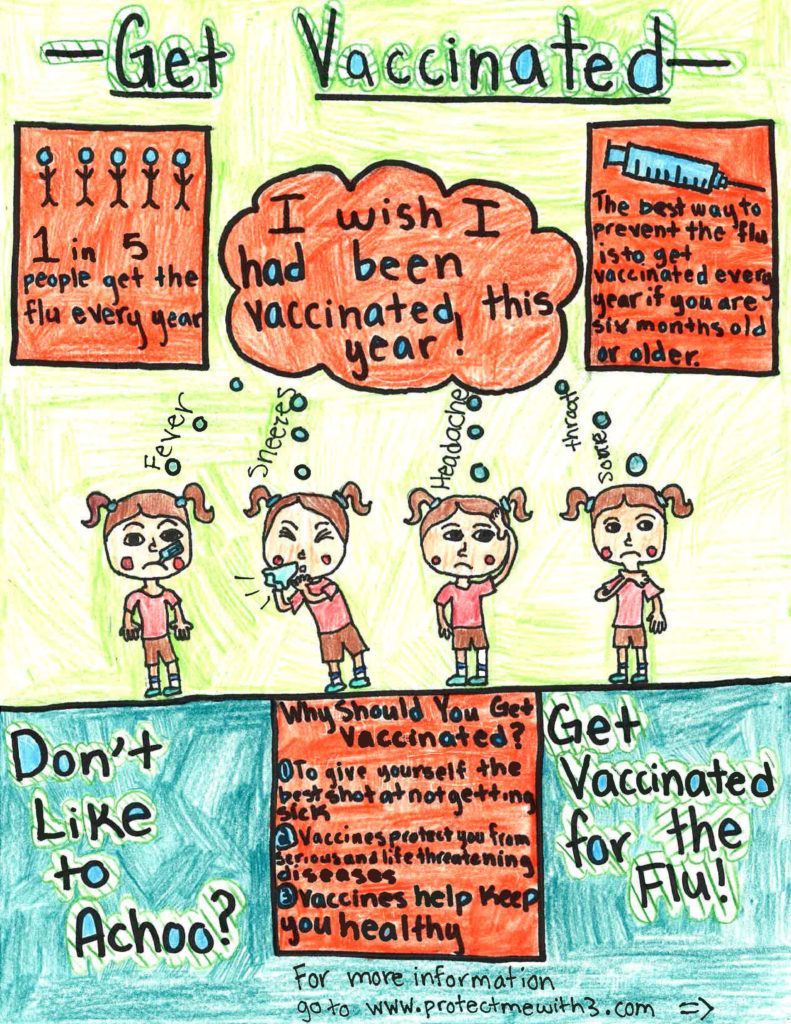 Get Vaccinated
1 in 5
people get the
flu every year
I wish I
had been
vaccinated, this
year!
The best way to
prevent the flu
is to get
vaccinated every
year if you are
six months old
or older.
Fever
Sneezes
Headache
Sore throat
Why Should You Get
Vaccinated?
1 To give yourself the
best shot at not getting
sick
2 Vaccines protect you from
serious and life threatening
diseases
3 Vaccines help keep
you healthy
Don't
Like
to
Achoo?
Get
Vaccinated
for the
Flu!
For more information
go to www.protectmewith3.com =>